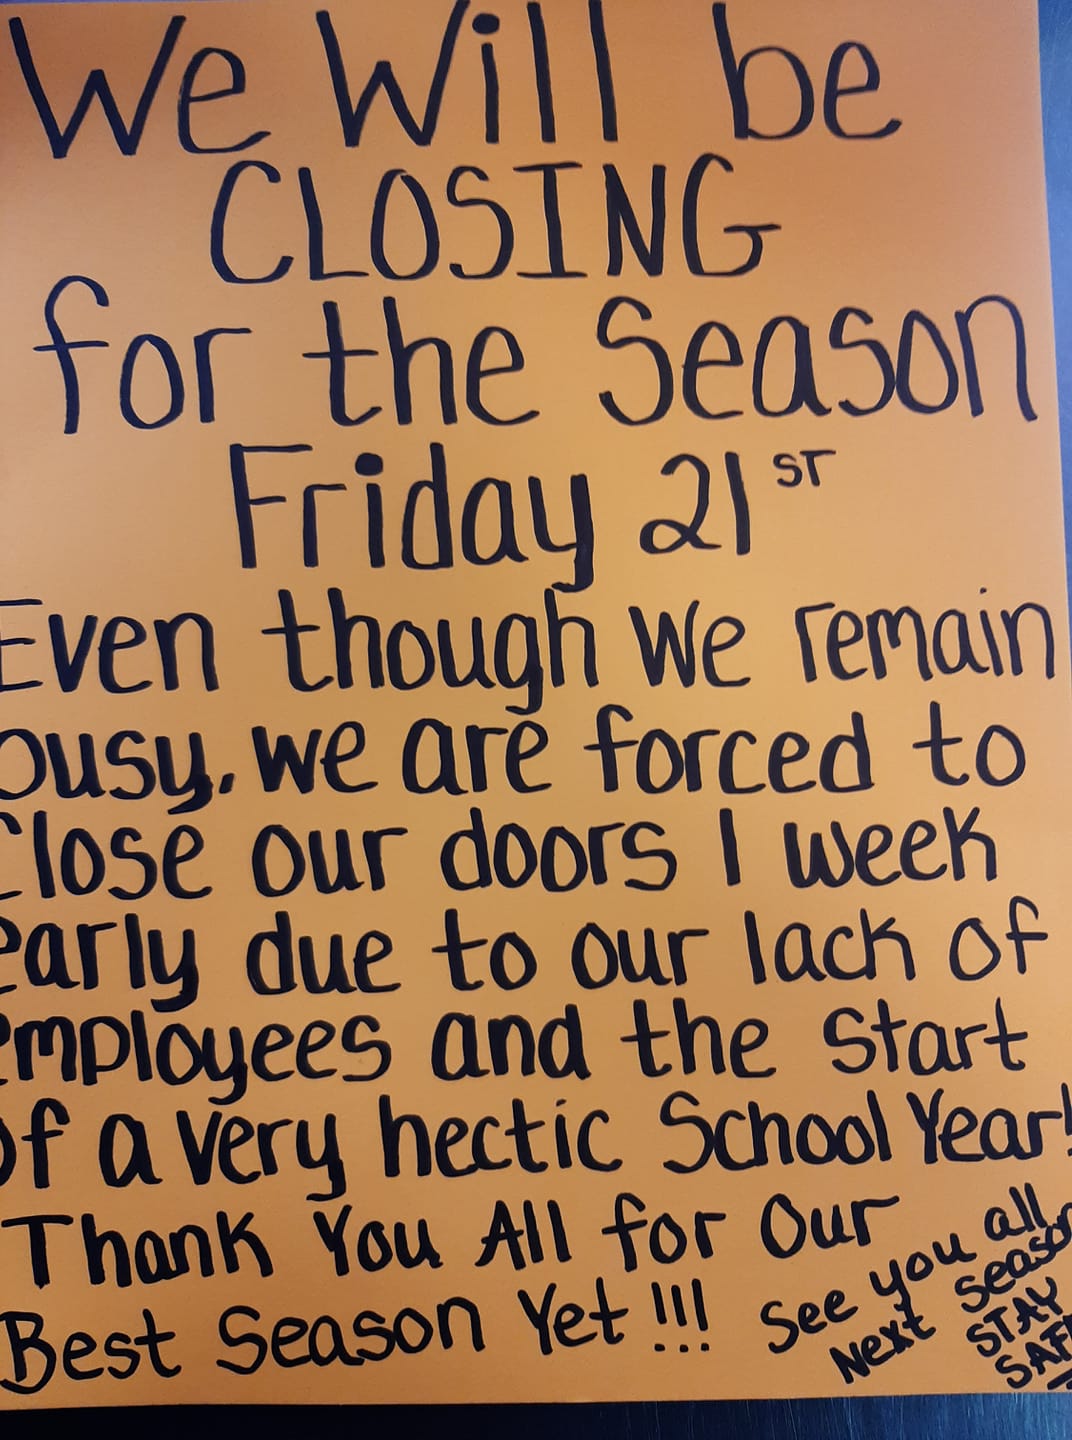 We Will be
CLOSING
for the Season
Friday 21ST
Even though we remain
busy, we are forced to
Close our doors 1 week
early due to our lack of
employees and the Start
of a very hectic School Year!
Thank You All for Our
Best Season Yet!!!
See you all
Next Season
STAY
SAFE